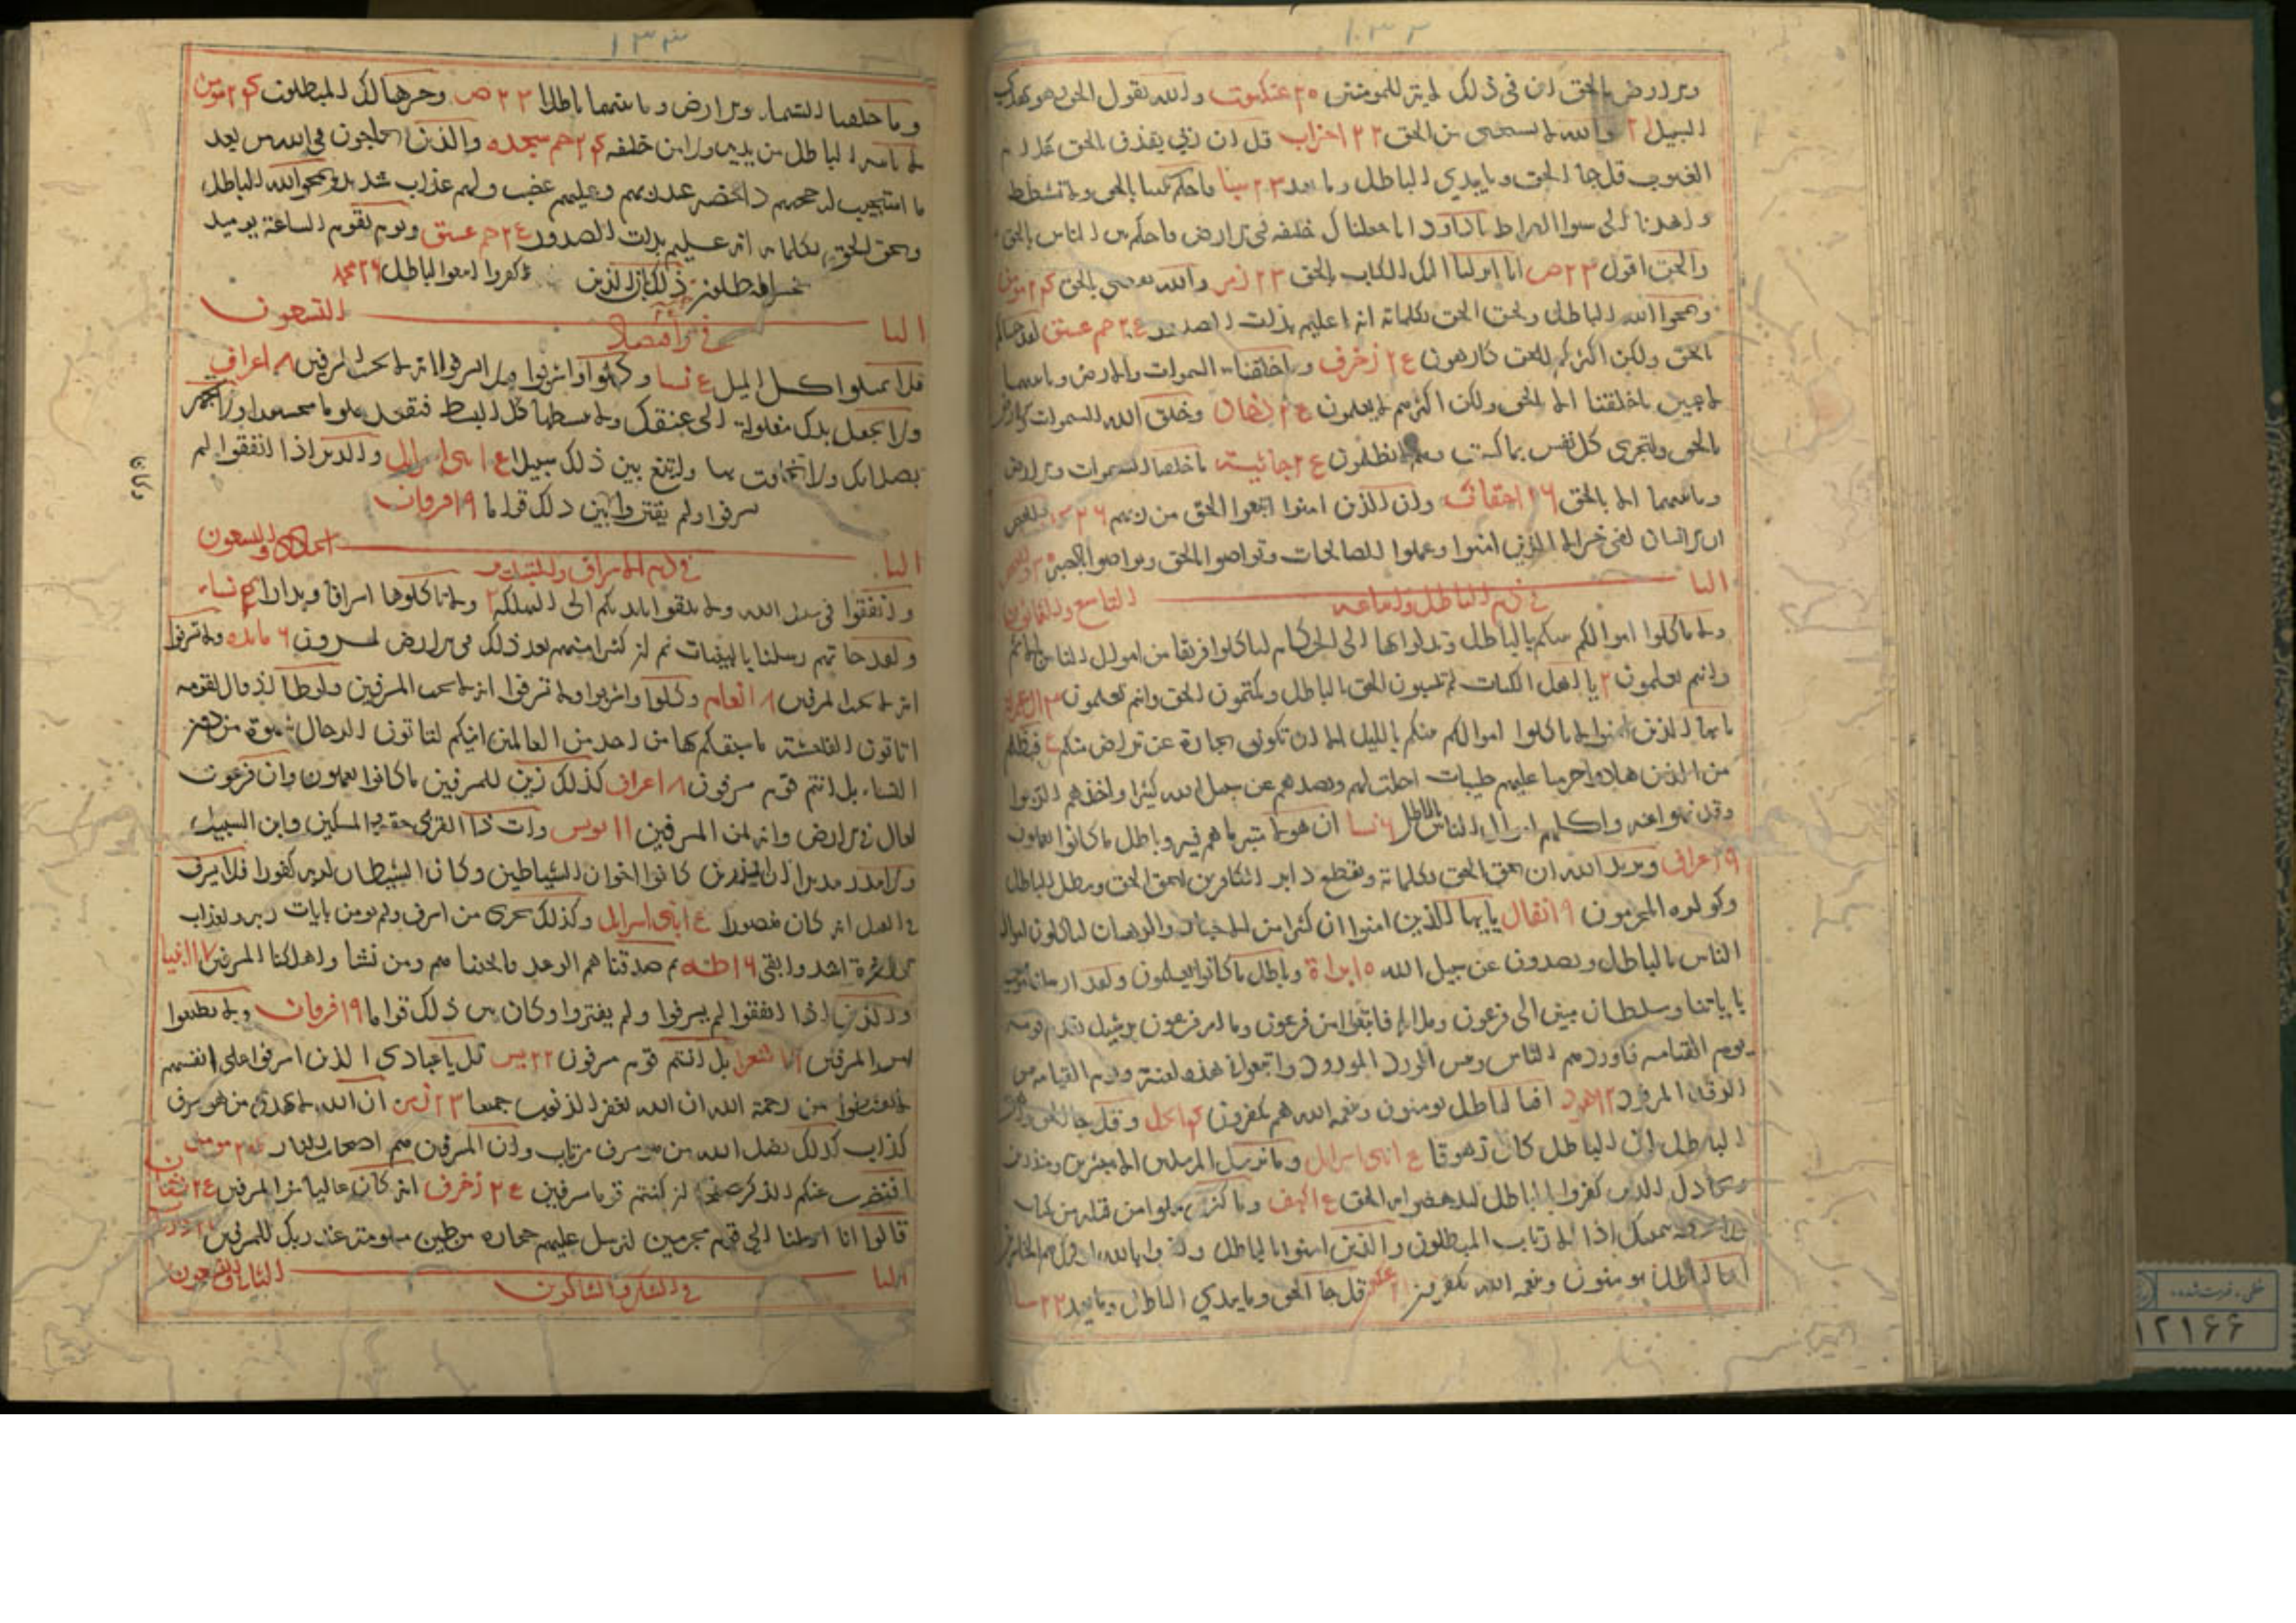 ۱۳۲
والارض بالحق ان فی ذلک لایة للمومنین ۲۰ عنکبوت والله یقول الحق وهو یهدی
السبیل ۲۱ والله لا یستحیی من الحق ۲۲ احزاب قل ان ربی یقذف بالحق علام
الغیوب قل جا الحق وما یبدی الباطل وما یعید ۲۲ سبا فاحکم بیننا بالحق ولا تشطط
واهدنا الی سوا الصراط یا داود انا جعلناک خلیفه فی الارض فاحکم بین الناس بالحق
والحق اقول ۲۳ ص انا انزلنا الیک الکتاب بالحق ۲۳ زمر والله یقضی بالحق ۲۴ مومن
ویمحوا الله الباطل ویحق الحق بکلماته انه علیم بذات الصدور ۲۵ حم عسق لقد جئناکم
بالحق ولکن اکثرکم للحق کارهون ۲۵ زخرف وما خلقنا السموات والارض وما بینهما
لاعبین ما خلقناهما الا بالحق ولکن اکثرهم لا یعلمون ۲۵ دخان وخلق الله السموات والارض
بالحق ولتجزی کل نفس بما کسبت وهم لا یظلمون ۲۵ جاثیه ما خلقنا السموات والارض
وما بینهما الا بالحق ۲۶ احقاف وان الذین امنوا اتبعوا الحق من ربهم ۲۶ والعصر
ان الانسان لفی خسر الا الذین امنوا وعملوا الصالحات وتواصوا بالحق وتواصوا بالصبر
البا التاسع والثمانون
فی ذم الباطل واتباعه
ولا تاکلوا اموالکم بینکم بالباطل وتدلوا بها الی الحکام لتاکلوا فریقا من اموال الناس بالاثم
وانتم تعلمون ۲ یا اهل الکتاب لم تلبسون الحق بالباطل وتکتمون الحق وانتم تعلمون ۳ ال عمران
یا ایها الذین امنوا لا تاکلوا اموالکم بینکم بالباطل الا ان تکون تجارة عن تراض منکم فبظلم
من الذین هادوا حرمنا علیهم طیبات احلت لهم وبصدهم عن سبیل الله کثیرا واخذهم الربوا
وقد نهوا عنه واکلهم اموال الناس بالباطل ۶ نسا ان هولا متبر ما هم فیه وباطل ما کانوا یعملون
۹ اعراف ویرید الله ان یحق الحق بکلماته ویقطع دابر الکافرین لیحق الحق ویبطل الباطل
ولو کره المجرمون ۹ انفال یا ایها الذین امنوا ان کثیرا من الاحبار والرهبان لیاکلون اموال
الناس بالباطل ویصدون عن سبیل الله ۱۰ براة وباطل ما کانوا یعملون ولقد ارسلنا موسی
بایاتنا وسلطان مبین الی فرعون وملائه فاتبعوا امر فرعون وما امر فرعون برشید یقدم قومه
یوم القیامه فاوردهم النار وبئس الورد المورود واتبعوا فی هذه لعنة ویوم القیامه بئس
الرفد المرفود ۱۲ هود افبالباطل یومنون وبنعمة الله هم یکفرون ۱۴ نحل وقل جا الحق وزهق
الباطل ان الباطل کان زهوقا ۱۵ بنی اسرایل وما نرسل المرسلین الا مبشرین ومنذرین
ویجادل الذین کفروا بالباطل لیدحضوا به الحق ۱۵ کهف وما کنت تتلوا من قبله من کتاب
ولا تخطه بیمینک اذا لارتاب المبطلون والذین امنوا بالباطل وکفروا بالله اولئک هم الخاسرون
افبالباطل یومنون وبنعمة الله یکفرون ۲۱ عنکبوت قل جا الحق وما یبدی الباطل وما یعید ۲۲ سبا
۱۳۳
وما خلقنا السما والارض وما بینهما باطلا ۲۳ ص وخسر هنالک المبطلون ۲۴ مومن
لا یاتیه الباطل من بین یدیه ولا من خلفه ۲۴ حم سجده والذین یحاجون فی الله من بعد
ما استجیب له حجتهم داحضة عند ربهم وعلیهم غضب ولهم عذاب شدید ویمحوا الله الباطل
ویحق الحق بکلماته انه علیم بذات الصدور ۲۵ حم عسق ویوم تقوم الساعة یومئذ
یخسر المبطلون ذلک بان الذین کفروا اتبعوا الباطل ۲۶ محمد
البا التسعون
فی الاقتصاد
فلا تمیلوا کل المیل ۵ نسا وکلوا واشربوا ولا تسرفوا انه لا یحب المسرفین ۸ اعراف
ولا تجعل یدک مغلولة الی عنقک ولا تبسطها کل البسط فتقعد ملوما محسورا ولا تجهر
بصلاتک ولا تخافت بها وابتغ بین ذلک سبیلا ۱۵ بنی اسرایل والذین اذا انفقوا لم
یسرفوا ولم یقتروا وکان بین ذلک قواما ۱۹ فرقان
البا الحادی والتسعون
فی ذم الاسراف والتبذیر
وانفقوا فی سبیل الله ولا تلقوا بایدیکم الی التهلکة ۲ ولا تاکلوها اسرافا وبدارا ۴ نسا
ولقد جاتهم رسلنا بالبینات ثم ان کثیرا منهم بعد ذلک فی الارض لمسرفون ۶ مایده ولا تسرفوا
انه لا یحب المسرفین ۸ انعام وکلوا واشربوا ولا تسرفوا انه لا یحب المسرفین ولوطا اذ قال لقومه
اتاتون الفاحشة ما سبقکم بها من احد من العالمین انکم لتاتون الرجال شهوة من دون
النساء بل انتم قوم مسرفون ۸ اعراف کذلک زین للمسرفین ما کانوا یعملون وان فرعون
لعال فی الارض وانه لمن المسرفین ۱۱ یونس وات ذا القربی حقه والمسکین وابن السبیل
ولا تبذر تبذیرا ان المبذرین کانوا اخوان الشیاطین وکان الشیطان لربه کفورا فلا یسرف
فی القتل انه کان منصورا ۱۵ بنی اسرایل وکذلک نجزی من اسرف ولم یومن بایات ربه ولعذاب
الاخرة اشد وابقی ۱۶ طه ثم صدقناهم الوعد فانجیناهم ومن نشا واهلکنا المسرفین ۱۷ انبیا
والذین اذا انفقوا لم یسرفوا ولم یقتروا وکان بین ذلک قواما ۱۹ فرقان ولا تطیعوا
امر المسرفین ۱۹ شعرا بل انتم قوم مسرفون ۲۲ یس قل یا عبادی الذین اسرفوا علی انفسهم
لا تقنطوا من رحمة الله ان الله یغفر الذنوب جمیعا ۲۳ زمر ان الله لا یهدی من هو مسرف
کذاب کذلک یضل الله من هو مسرف مرتاب وان المسرفین هم اصحاب النار ۲۴ مومن
افنضرب عنکم الذکر صفحا ان کنتم قوما مسرفین ۲۵ زخرف انه کان عالیا من المسرفین ۲۵ دخان
قالوا انا ارسلنا الی قوم مجرمین لنرسل علیهم حجارة من طین مسومة عند ربک للمسرفین
البا الثانی والتسعون
فی الشکر والشاکرین
۱۲۱۶۶